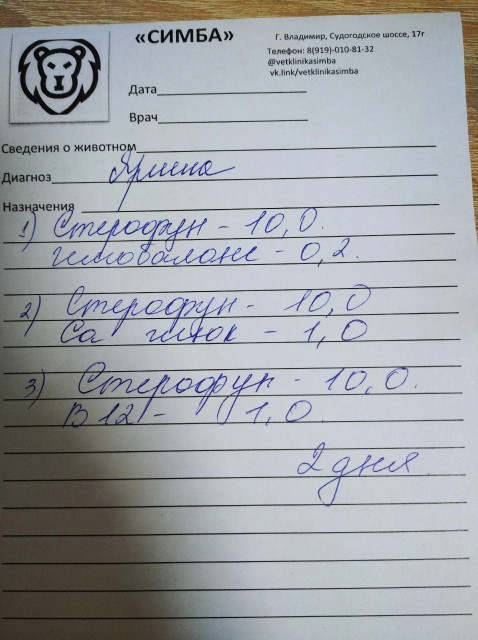 «СИМБА»
Г. Владимир, Судогодское шоссе, 17г
Телефон: 8(919)-010-81-32
@vetklinikasimba
vk.link/vetklinikasimba
Дата
Врач
Сведения о животном
Диагноз Ярина
Назначения
1) Стерофун - 10,0.
гемобаланс - 0,2.
2) Стерофун - 10,0
Ca глюк - 1,0
3) Стерофун - 10,0.
В12 - 1,0.
2 дня.